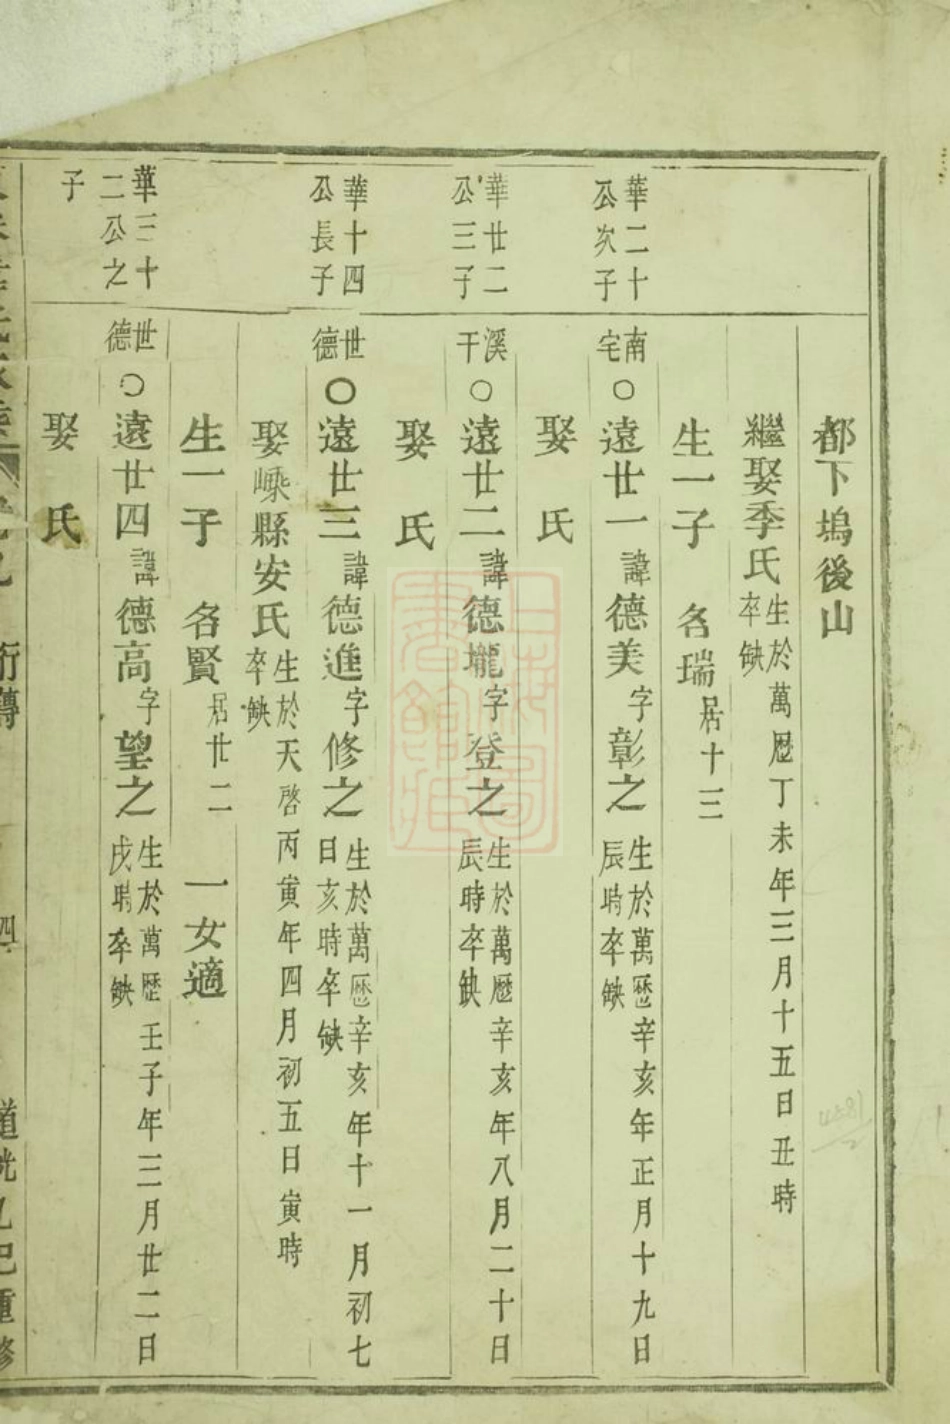 都下塢後山
繼娶季氏生於萬歷丁未年三月十五日丑時卒缺
生一子 名瑞居十三
華二十公次子
南宅○遠廿一諱德美字彰之生於萬歷辛亥年正月十九日辰時卒缺
娶 氏
華廿二公三子
溪干○遠廿二諱德壠字登之生於萬歷辛亥年八月二十日辰時卒缺
娶 氏
華十四公長子
世德○遠廿三諱德進字修之生於萬歷辛亥年十一月初七日亥時卒缺
娶嵊縣安氏生於天啓丙寅年四月初五日寅時卒缺
生一子 名賢居廿二 一女適
華三十二公之子
世德○遠廿四諱德高字望之生於萬歷壬子年三月廿二日戌時卒缺
娶 氏
行傳
四
道光乙巳重修